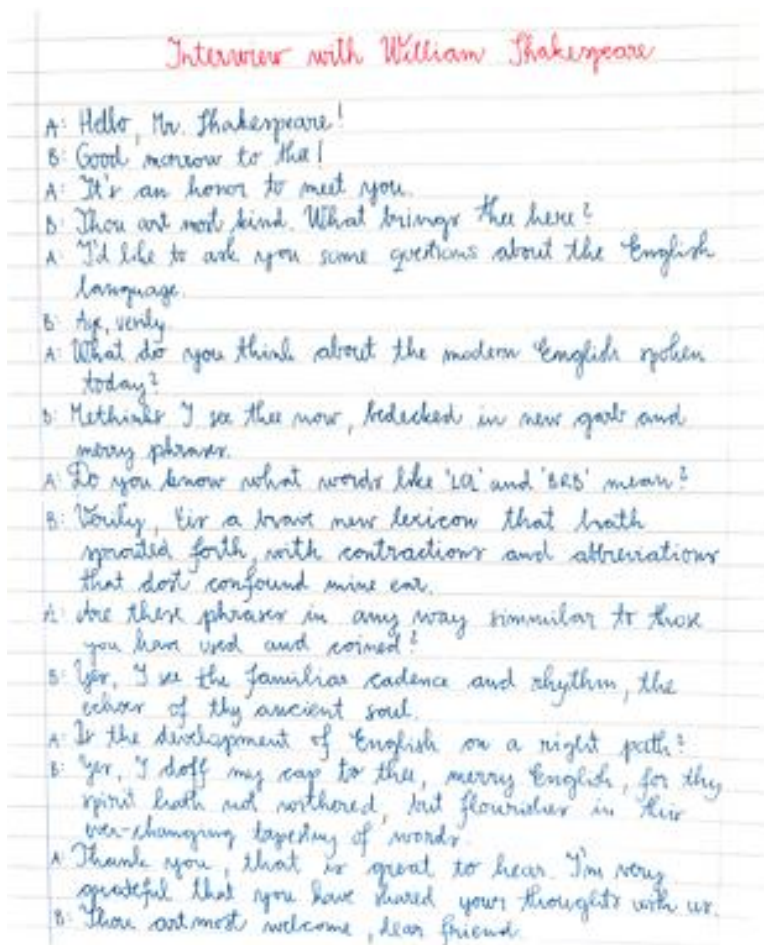 Interview with William Shakespeare
A: Hello, Mr. Shakespeare!
B: Good morrow to thee!
A: It's an honor to meet you.
B: Thou art most kind. What brings thee here?
A: I'd like to ask you some questions about the English
language.
B: Aye, verily.
A: What do you think about the modern English spoken
today?
B: Methinks I see thee now, bedecked in new garb and
merry phrases.
A: Do you know what words like 'LOL' and 'BRB' mean?
B: Verily, tis a brave new lexicon that hath
sprouted forth, with contractions and abbreviations
that dost confound mine ear.
A: Are these phrases in any way simmilar to those
you have used and coined?
B: Yes, I see the familiar cadence and rhythm, the
echoes of thy ancient soul.
A: Is the development of English on a right path?
B: Yes, I doff my cap to thee, merry English, for thy
spirit hath not withered, but flourishes in this
ever-changing tapestry of words.
A: Thank you, that is great to hear. I'm very
grateful that you have shared your thoughts with us.
B: Thou art most welcome, dear friend.